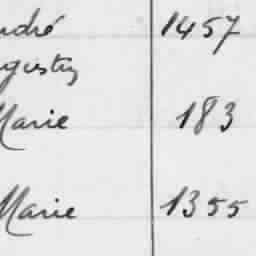 ndré 1457
gustin
Marie 183
Marie 1355